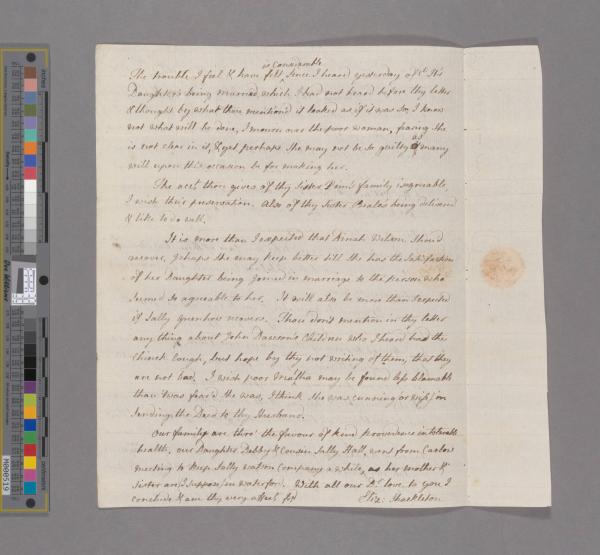 is Considerable
The trouble I feel & have felt Since I heard yesterday of
Daughter's being married, which I had not heard before thy letter
& thought by what thou mentiond it looked as if it was so, I know
not what will be done, I mourn over the poor woman, fearing She
is not clear in it, & yet perhaps She may not be so guilty as many
will upon this occasion be for making her.
The acct. thou gives of thy Sister family is agreeable,
I wish their preservation. Also of thy Sister being deliverd
& like to do well.
It is more than I expected that Wilson Should
recover, perhaps She may keep better till She has the Satisfaction
of her Daughter being Joined in marriage to the person who
Seemed So agreeable to her. It will also be more than I expected
if Sally recovers. Thou don't mention in thy letter
any thing about John Children who I heard had the
Chincough, but hope by thy not writing of them, that they
are not bad. I wish poor may be found less blamable
than 'twas fear'd She was, I think She was cunning or in
Sending the Deed to thy Husband.
Our family are thro' the favour of kind providence in tolerable
health, our Daughter Debby & Cousin Sally Hall, went from Carlow
meeting to keep Sally Watson Company a while, as her mother &
Sister are I Suppose in Waterford. With all our Dr. love to you I
conclude & am thy very affect. frd
Eliz: Shackleton
M000519